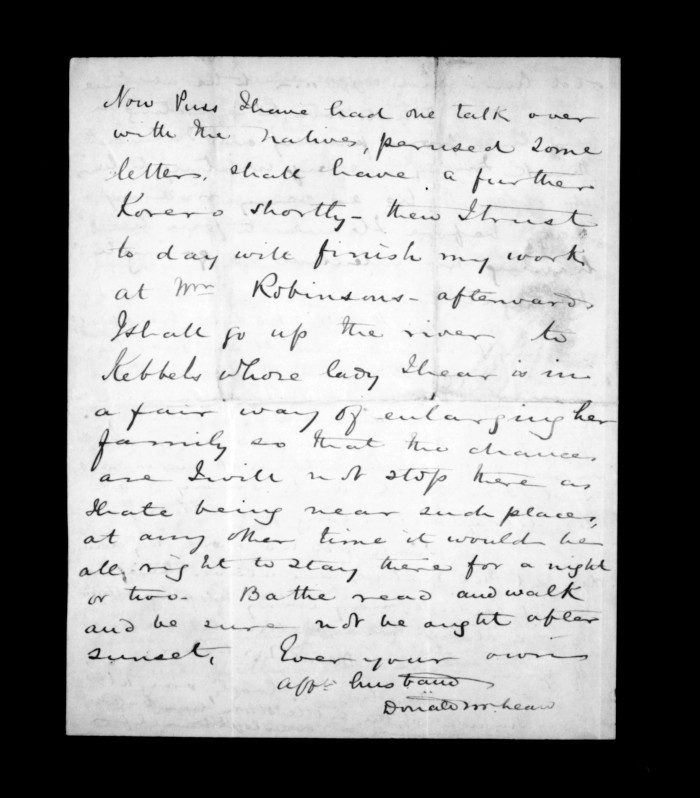 Now Puss I have had one talk over
with the Natives, perused some
letters, shall have a further
Korero shortly - then I trust
to day will finish my work
at Wm Robinsons - afterwards
I shall go up the river to
Kebbels whose lady I hear is in
a fair way of enlarging her
family so that the chances
are I will not stop there as
I hate being near such places,
at any other time it would be
all right to stay there for a night
or two. Bathe read and walk
and be sure not be out after
sunset, Ever your own
afft husband
Donald McLean